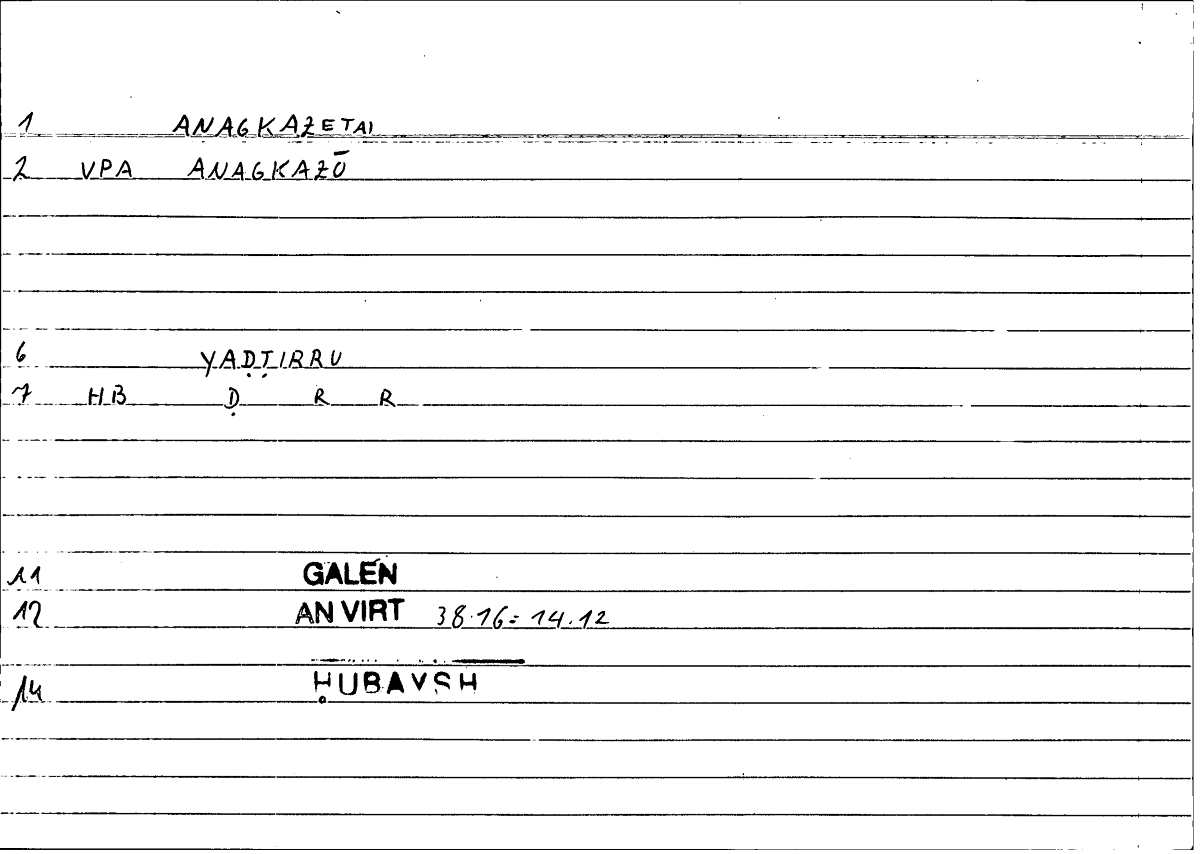 1 ANAGKAZETAI
2 VPA ANAGKAZŌ
6 YAḌṬIRRU
7 HB Ḍ R R
11 GALEN
12 AN VIRT 38.16 = 14.12
14 ḤUBAYSH